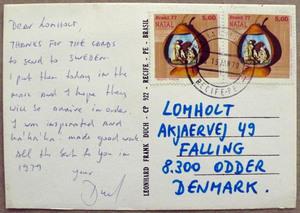 Dear Lomholt,
THANKS FOR THE CARDS
to send to SWEDEN.
I put them today in the
mail and I hope they
will so arrive in order
I was inspirated and
ha'ha'ha - made good work
All the best to you in
1979
your
LEONHARD FRANK DUCH - CP 922 - RECIFE - PE - BRASIL
Brasil 77 5,00
NATAL
Brasil 77 5,00
NATAL
RECIFE-PE
LOMHOLT
AKJAERVEJ 49
FALLING
8.300 ODDER
DENMARK.